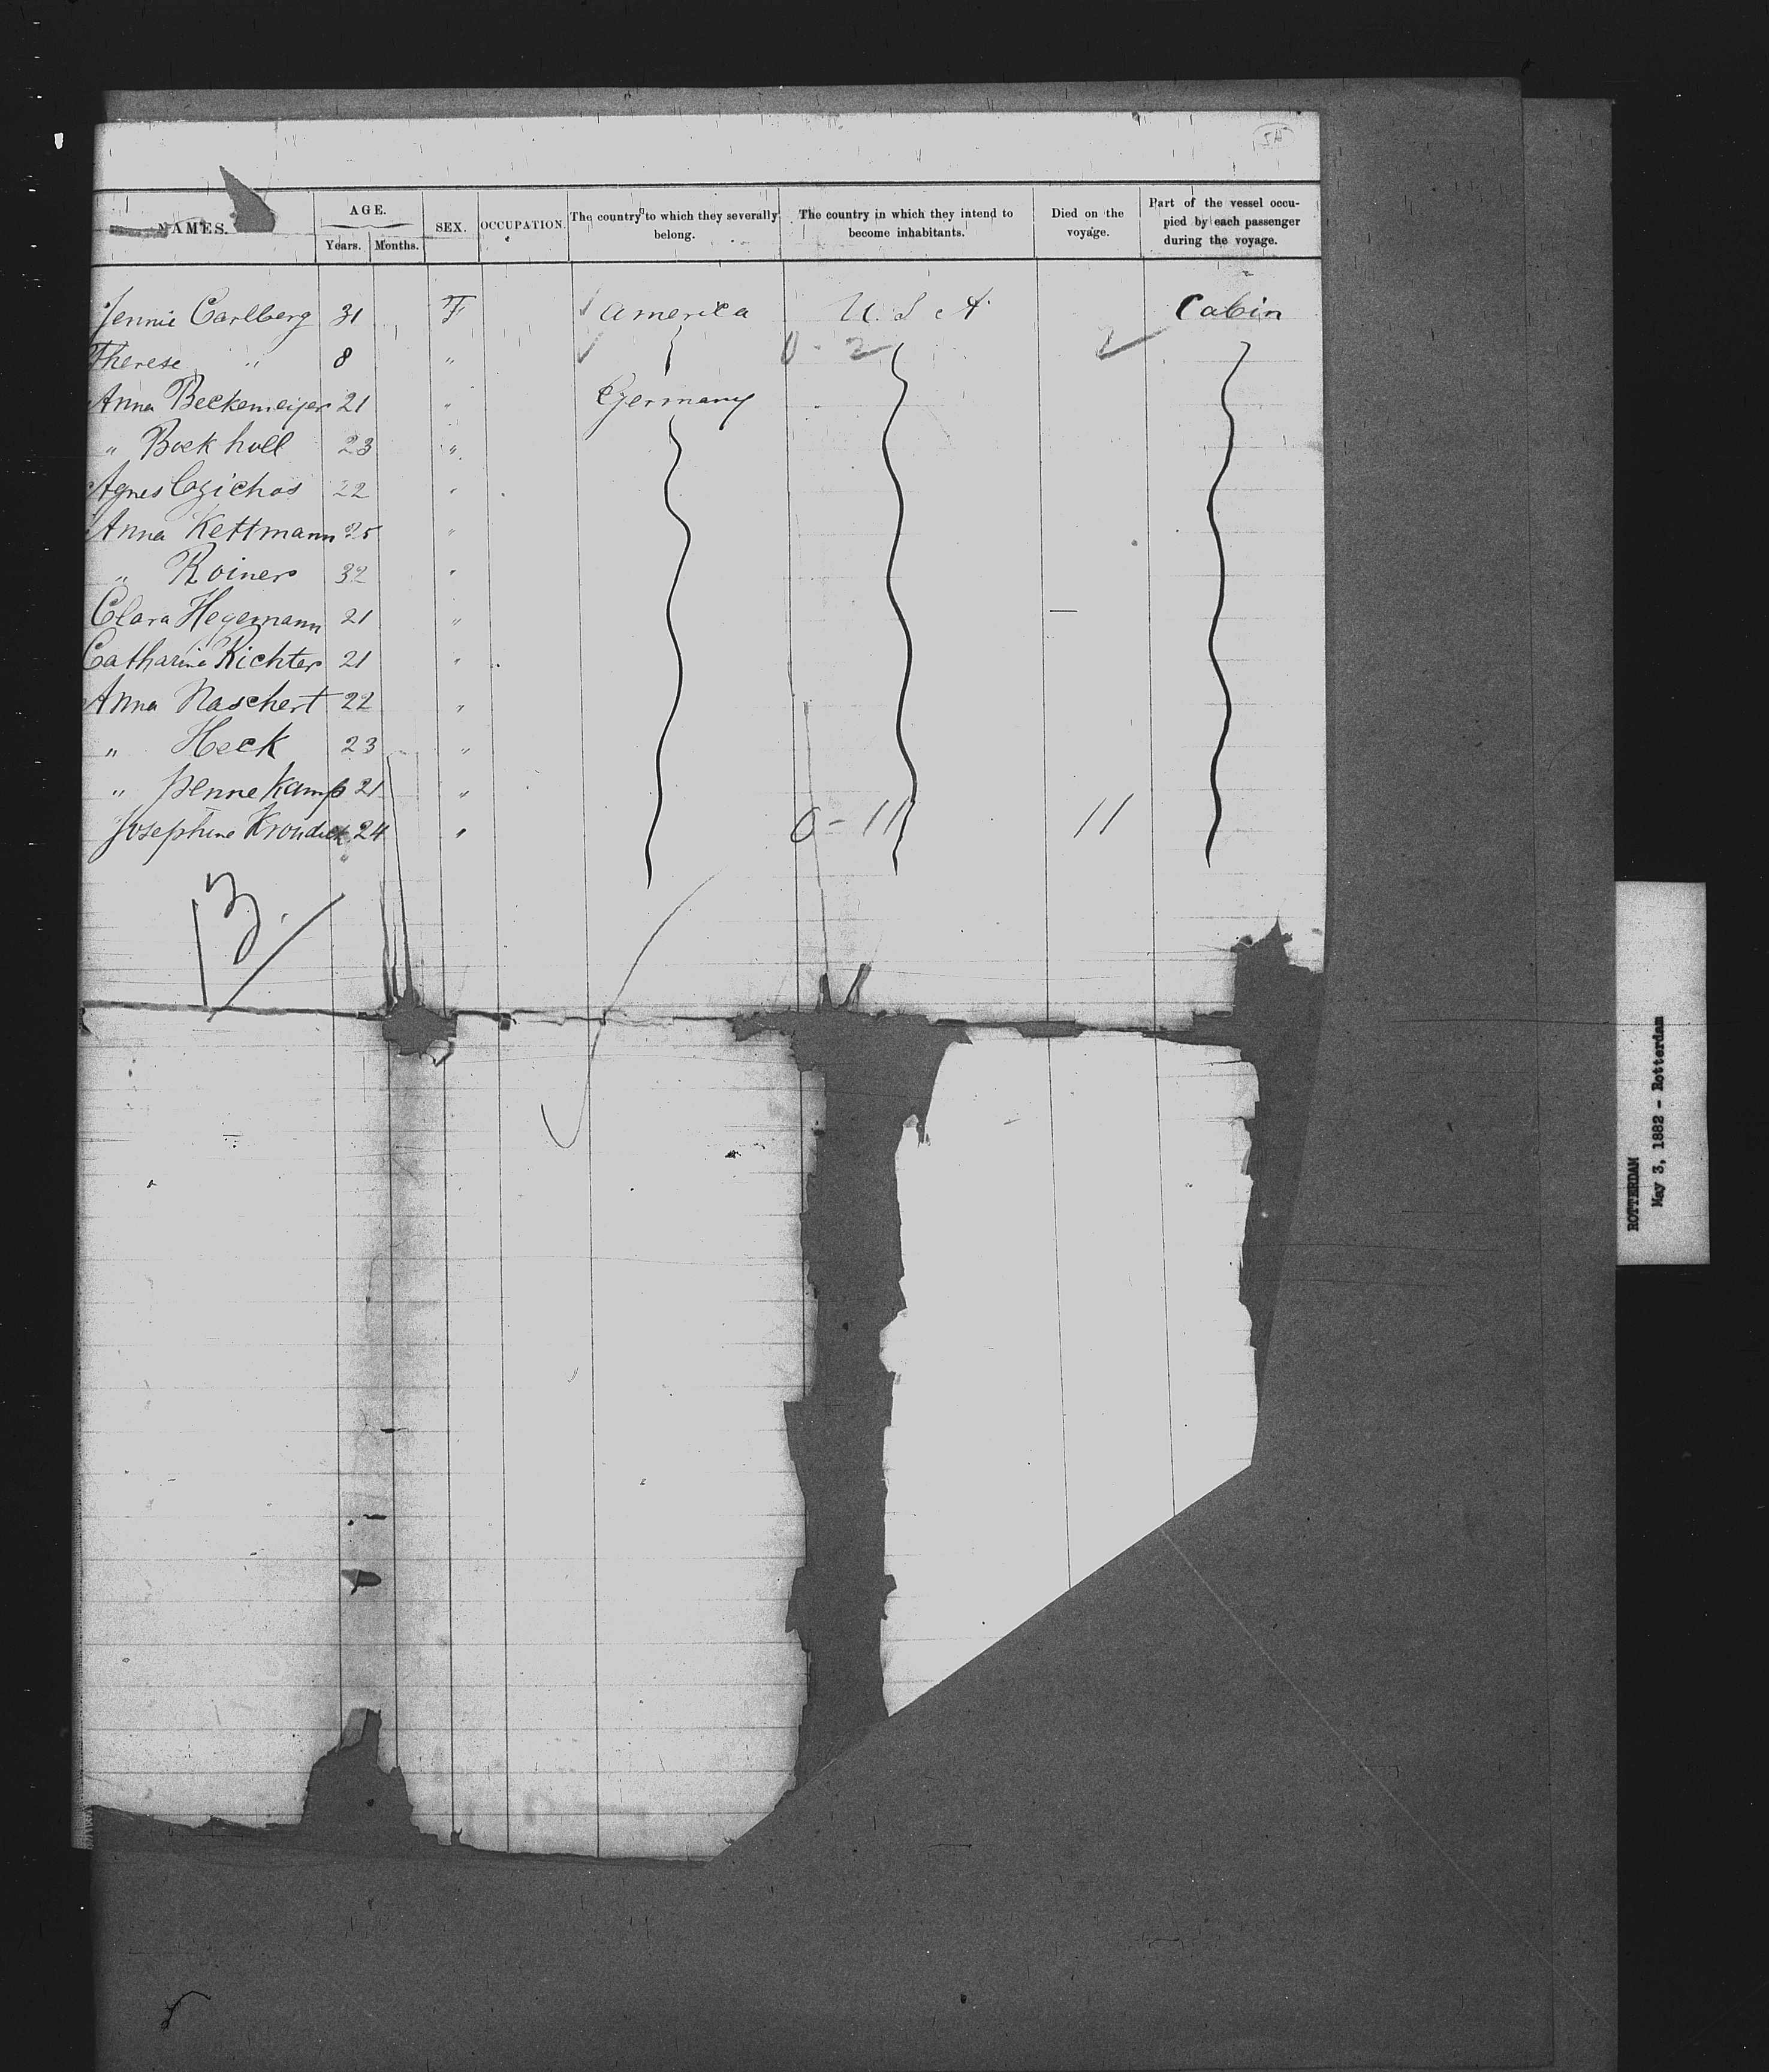 NAMES. AGE. Years. Months. SEX. OCCUPATION. The country to which they severally belong. The country in which they intend to become inhabitants. Died on the voyage. Part of the vessel occupied by each passenger during the voyage.
Jennie Carlberg 31 F America U. S A Cabin
Therese " 8 " 0 - 2
Anna Beckemeijer 21 " Germany
" Bockholl 23 "
Agnes 22 "
Anna Kettmann 25 "
" Roiner 32 "
Clara Hegemann 21 "
Catharine Richter 21 "
Anna Naschert 22 "
" Heck 23 "
" Pennekamp 21 "
Josephine 24 " 0 - 11 11
13.
ROTTERDAM
May 3, 1882 - Rotterdam